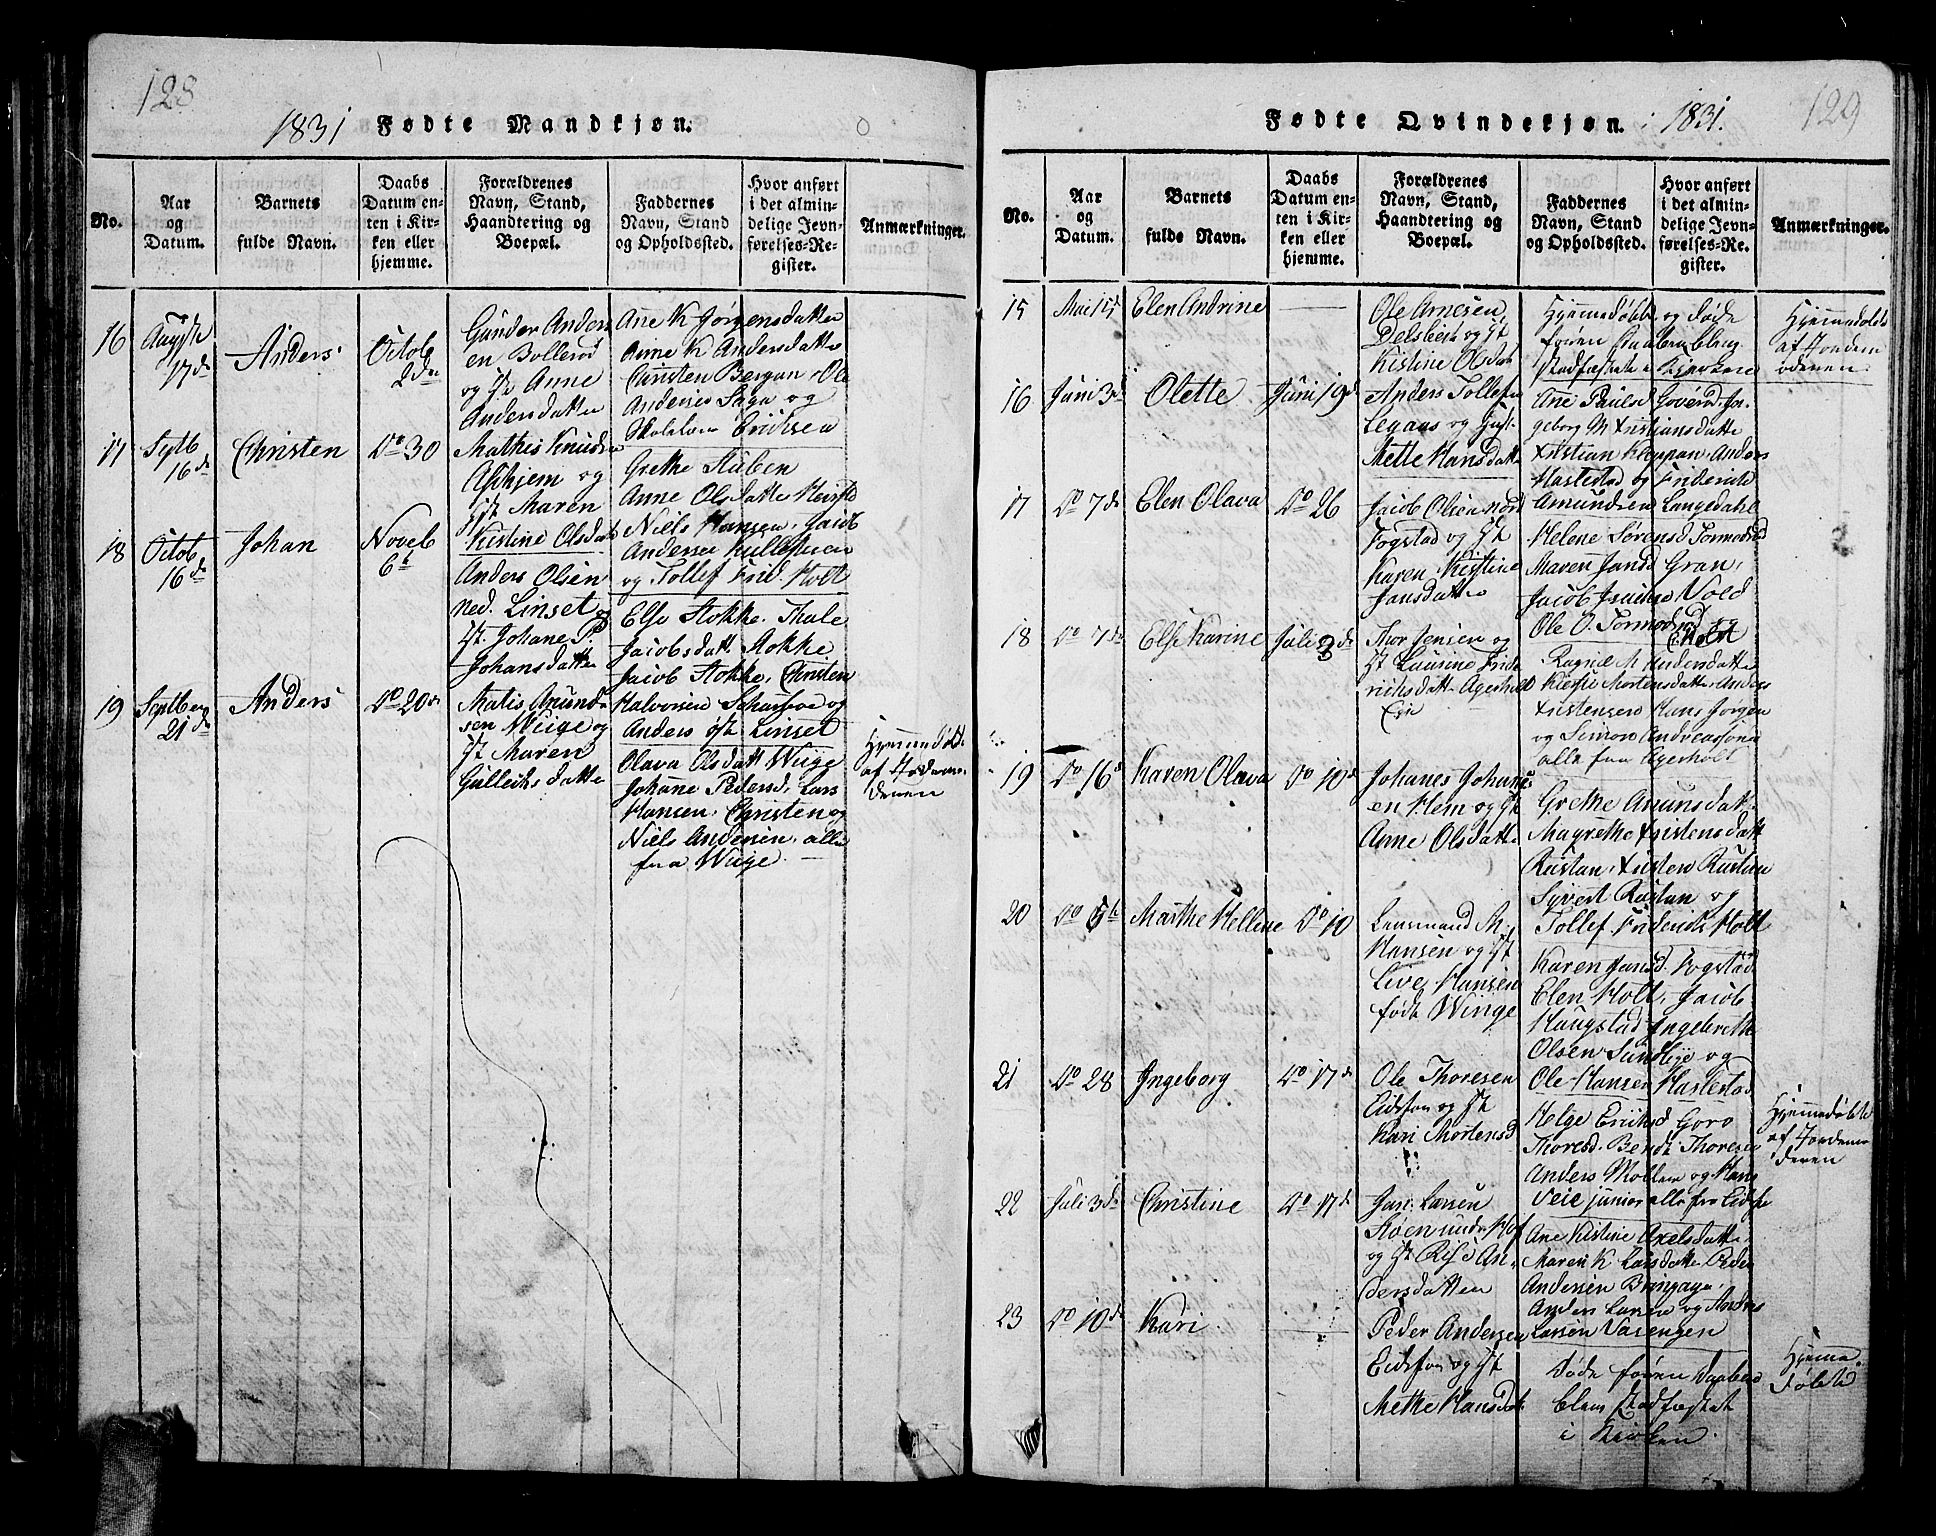 128
1831 Fødte Mandkjøn.
No.
Aar
og
Datum.
Barnets
fulde Navn.
Daabs
Datum en-
ten i Kir-
ken eller
hjemme.
Forældrenes
Navn, Stand,
Haandtering og
Boepæl.
Faddernes
Navn, Stand
og Opholdssted.
Hvor anført
i det almin-
delige Jevn-
førelses-Re-
gister.
Anmærkninger.
16
17de
Anders
Octob
2den
Gunder Anders
en Bollerød
og Hst Anne
Andersdatter
Ane K Jørgensdatter
Anne K Andersdatter
Christen Bergan, Ole
Andersen Saga og
Eriksen
17
Septb
16de
Christen
Do 30
Mathis Knudsen
Askjem og
Hst Maren
Kistine Olsdatt
Grethe Stubem
Anne Olsdatte
Niels Hansen, Jacob
Andersen
og Tollef Frid. Holt
18
Octob
16de
Johan
Noveb
6te
Anders Olsen
ned. Linset og
Hst Johane P
Johansdatter
Else Stokke, Thale
Jacobsdatt Stokke
Jacob Stokke, Christen
Halvorsen og
Anders Linset
19
Septber
21de
Anders
Do 20de
Matis Amund
sen Wiige og
Hst Maren
Gulleiksdatte
Olava Olsdatt Wiige
Johane Pedersd, Lars
Hansen, Christen og
Niels Andersen, alle
fra Wiige.
Hjemmedøbt
af Jordemo-
deren
129
Fødte Qvindekjøn. 1831.
No.
Aar
og
Datum.
Barnets
fulde Navn.
Daabs
Datum en-
ten i Kir-
ken eller
hjemme.
Forældrenes
Navn, Stand,
Haandtering og
Boepæl.
Faddernes
Navn, Stand
og Opholdssted.
Hvor anført
i det almin-
delige Jevn-
førelses-Re-
gister.
Anmærkninger.
15
Mai 15de
Elen Andrine
Ole Arnesen
og Hst
Kistine Olsdatt
Hjemmedøbt og døde
førend Daaben blev
stadfæstet i Kierken
Hjemmedøbt
af Jordem
oderen
16
Juni 3de
Olette
Juni 19de
Anders Tollefsen
og Hust
Mette Hansdatte
Ane Paulsd Goverød, In-
geborg M Xristiansdatte
Xristian Klappan, Anders
Hastestad og Friderich
Amundsen Langedahl
17
Do 7de
Elen Olava
Do 26
Jacob Olsen
Fogstad og Hst
Karen Kistine
Jansdatte
Helene Sørensd Tormodsrød
Maren Jansd Gran,
Jacob Vold
Ole O. Tormodsrød og
Holt
18
Do 7de
Else Karine
Juli 3de
Thor Jensen og
Hst Laurine Fride
richsdatt. Agerholt
Eie
Ragnil M Andersdatte
Kirstie Mortensdatte, Anders
Xristensen Hans Jørgen
og Simon Andreassøn
alle fra Agerholt
19
Do 16de
Karen Olava
Do 10de
Johanes Johans
en Hem og Hst
Anne Olsdatte
Grethe Amunsdatt
Magrethe Xristensdatt
Rustan, Xristen Rustan
Syvert Rustan og
Tollef Friderich Holt
20
Do 5te
Marthe Hellene
Do 10
Lensmand M.
Hansen og Hst
Live Hansen
født Winge
Karen Jansd. Fogstad
Elen Holt, Jacob
Haugstad, Ingebreth
Olsen Sundbye og
Ole Hansen Hastestad
21
Do 28
Ingeborg
Do 17de
Ole Thoresen
Eidsfos og Hst
Kari Mortensd
Helge Eriksd Goro
Thoresd. Bendt Thoresen
Anders Mollen og Hans
Veie junior alle fra Eidsfos
Hjemmedøbt
af Jordemo
deren
22
Juli 3de
Christine
Do 17de
Jan Larsen
Hof
og Hst An-
dersdatten
Ane Kistine Axelsdatte
Maren K Larsdatte Peder
Andersen
Anders Larsen og Andres
Larsen Vasengen
23
Do 10de
Kari
Peder Andersen
Eidsfos og Hst
Mette Hansdat.
Døde føren Daaben
blev Stadfæstet
i Kirken.
Hjemme
døbt